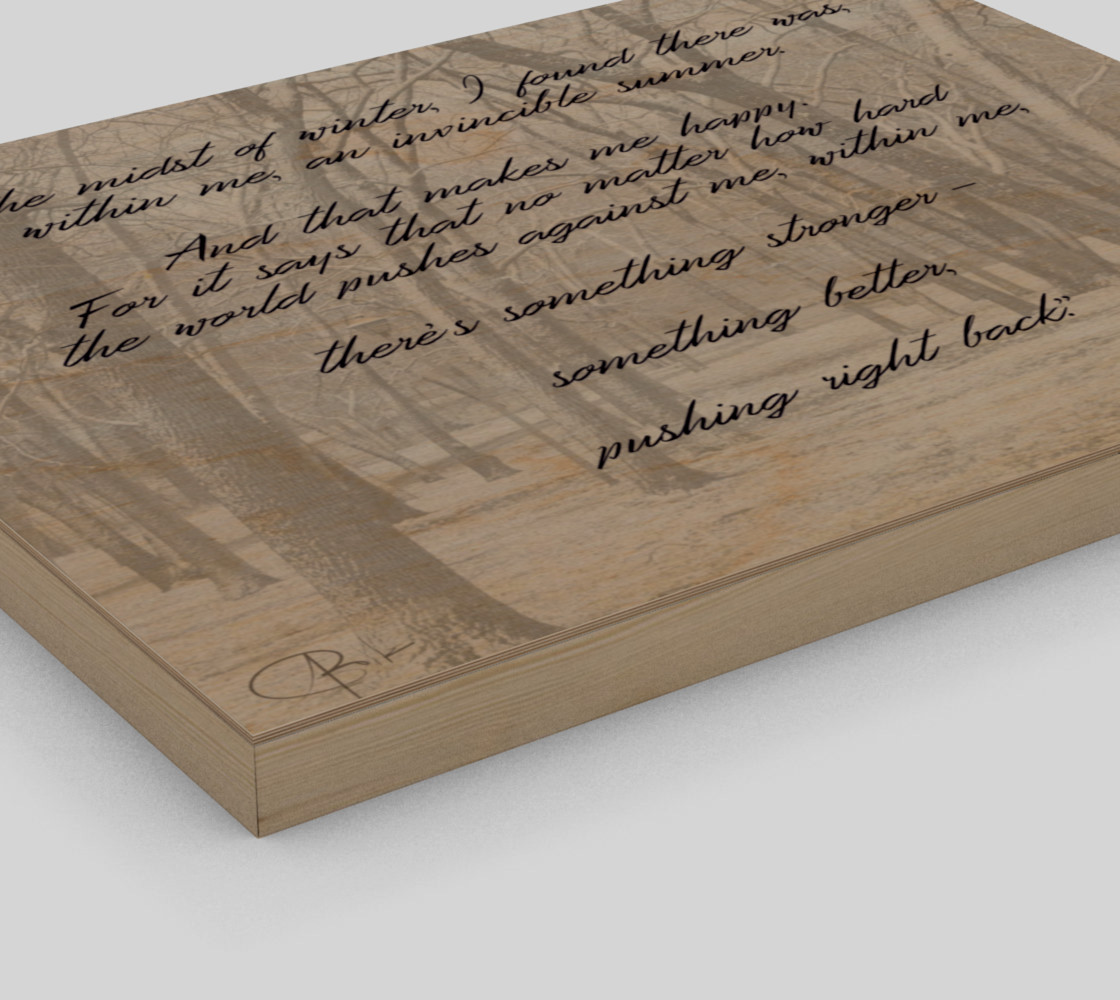 he midst of winter, I found there was,
within me, an invincible summer.
And that makes me happy.
For it says that no matter how hard
the world pushes against me, within me,
there's something stronger –
something better,
pushing right back".